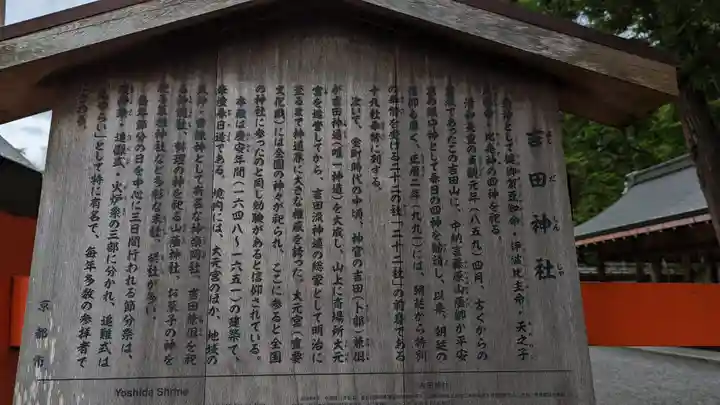 吉田神社
よしだじんじゃ
祭神として健御賀豆知命・伊波比主命・天之子
八根命・比売神の四神を祀る。
清和天皇の貞観元年（八五九）四月、古くからの
霊域であったこの吉田山に、中納言藤原山蔭卿が平安
京の鎮守神として春日の四神を勧請し、以来、朝廷の
信仰も厚く、正暦二年（九九一）には、朝廷から特別
の奉幣を受ける二十二の社「二十二社」の前身である
十九社奉幣に列する。
次いで、室町時代の中頃、神官の吉田（卜部）兼倶
が吉田神道（唯一神道）を大成し、山上に斎場所大元
宮を造営してから、吉田流神道の総家として明治に
至るまで神道界に大きな権威を誇った。大元宮（重要
文化財）には全国の神々が祀られ、ここに参ると全国
の神社に参ったのと同じ効験があると信仰されている。
本殿は慶安年間（一六四八〜一六五一）の建築で、
朱塗春日造である。境内には、大元宮のほか、地域の
産土神・厄除神として有名な神楽岡社、吉田兼倶を祀
る神龍社、料理の神を祀る山蔭神社、お菓子の神を
祀る菓祖神社など多彩な末社、摂社が多い。
毎年節分の日を中心に三日間行われる節分祭は、
疫神祭・追儺式・火炉祭の三部に分かれ、追儺式は
「鬼やらい」として特に有名で、毎年多数の参拝者で
京都市
Yoshida Shrine